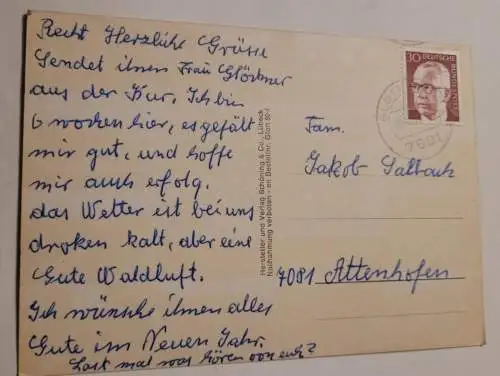 Recht Herzliche Grüsse
Sendet ihnen Frau Glöckner
aus der Kur. Ich bin
6 wochen hier, es gefält
mir gut, und hoffe
mir auch erfolg.
das Wetter ist bei uns
droken kalt, aber eine
Gute Waldluft.
Ich wünsche ihnen alles
Gute im Neuen Jahr.
Last mal was hören von euch?
Hersteller und Verlag Schöning & Co., Lübeck
Nachahmung verboten
30
DEUTSCHE BUNDESPOST
Fam.
Jakob
7081 Attenhofen